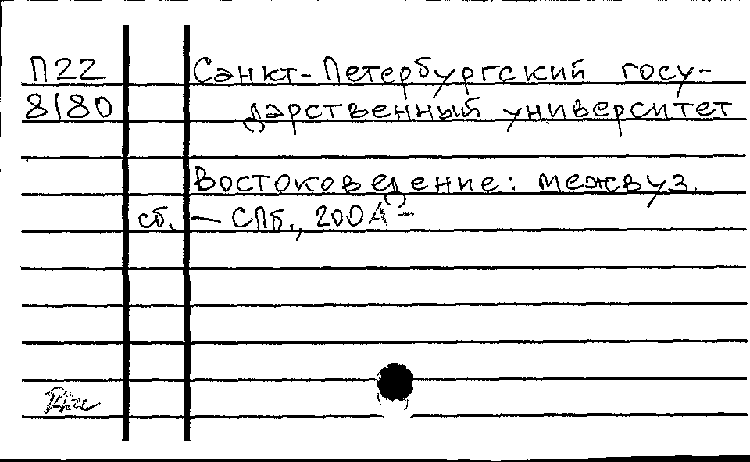 П22
8180
Санкт-Петербургский госу-
дарственный университет
Востоковедение: межвуз.
сб. — СПб., 2004 –